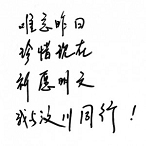 难忘昨日
珍惜现在
祈愿明天
我与汶川同行！